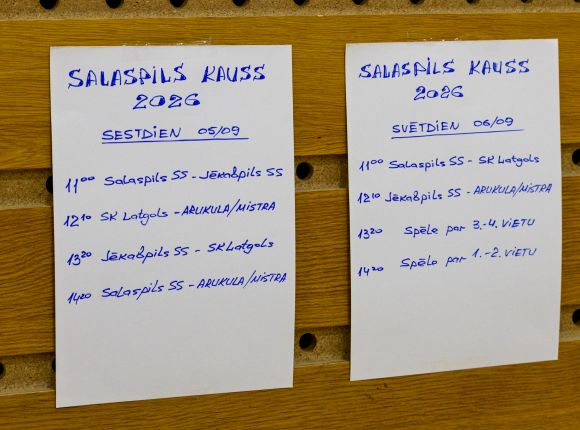 SALASPILS KAUSS
2026
SESTDIEN 05/09
11⁰⁰ Salaspils SS - Jēkabpils SS
12¹⁰ SK Latgols - ARUKULA/MISTRA
13²⁰ Jēkabpils SS - SK Latgols
14²⁰ Salaspils SS - ARUKULA/MISTRA
SALASPILS KAUSS
2026
SVĒTDIEN 06/09
11⁰⁰ Salaspils SS - SK Latgols
12¹⁰ Jēkabpils SS - ARUKULA/MISTRA
13²⁰ Spēle par 3.-4. VIETU
14²⁰ Spēle par 1.-2. VIETU